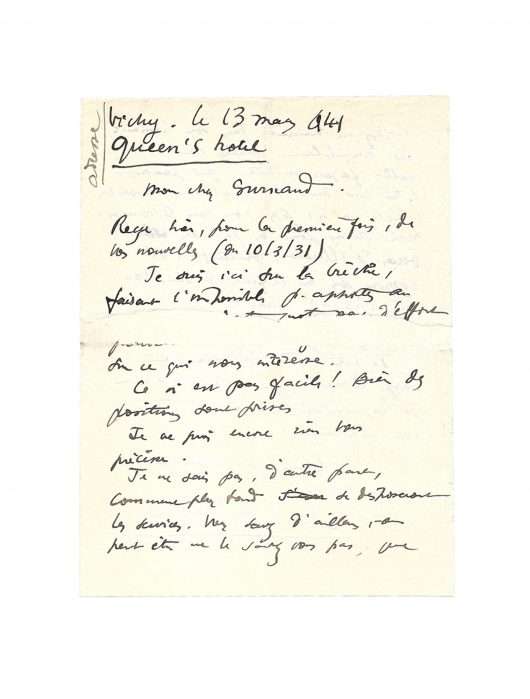 adresse
Vichy. le 13 mars 941
Queen's hotel
Mon cher Surnaud.
Reçu hier, pour la première fois, de
vos nouvelles (du 10/3/31)
Je suis ici sur la brèche,
faisant l'impossible p. apporter au
d'effort
sur ce qui nous intéresse.
Ce n'est pas facile! Bien des
positions sont prises
Je ne puis encore rien vous
préciser.
Je ne sais pas, d'autre part,
comment plus tard se disposeront
les services. Vous savez d'ailleurs, ou
peut être ne le savez vous pas, que